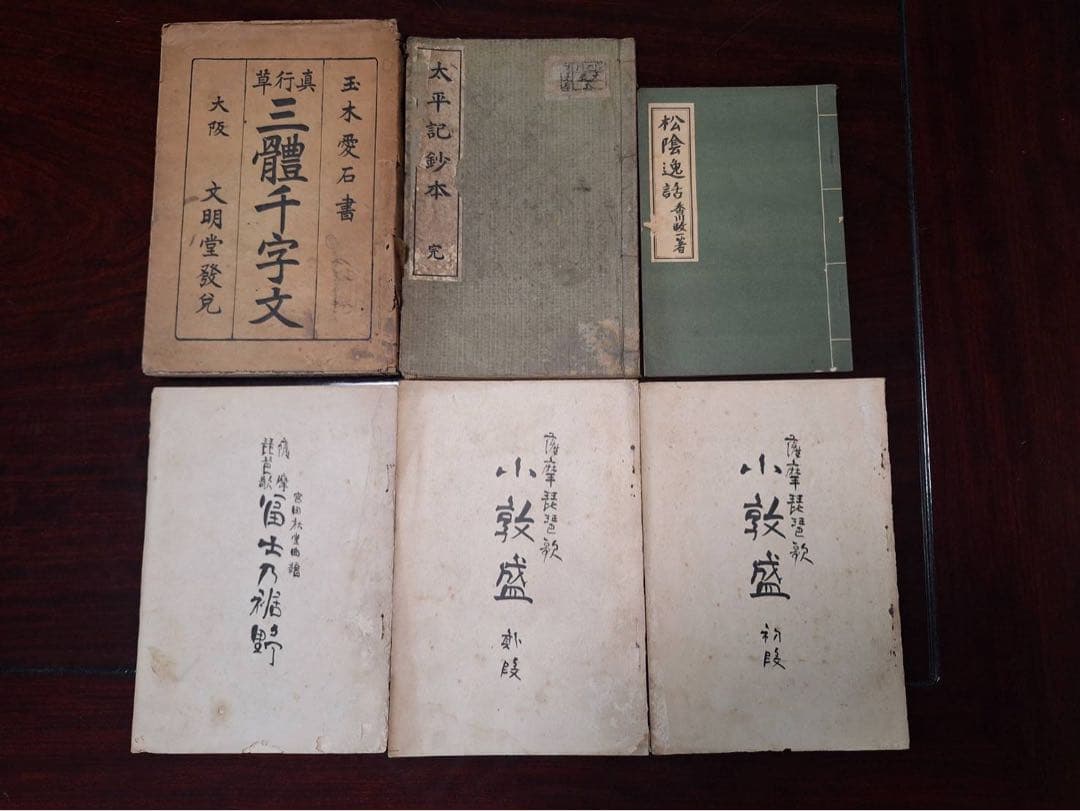 玉木愛石書
真行草
三體千字文
大阪 文明堂發兌
太平記鈔本 完
松陰逸話
香川政一著
薩摩琵琶歌
富士乃裾野
薩摩琵琶歌
小敦盛
薩摩琵琶歌
小敦盛
初段